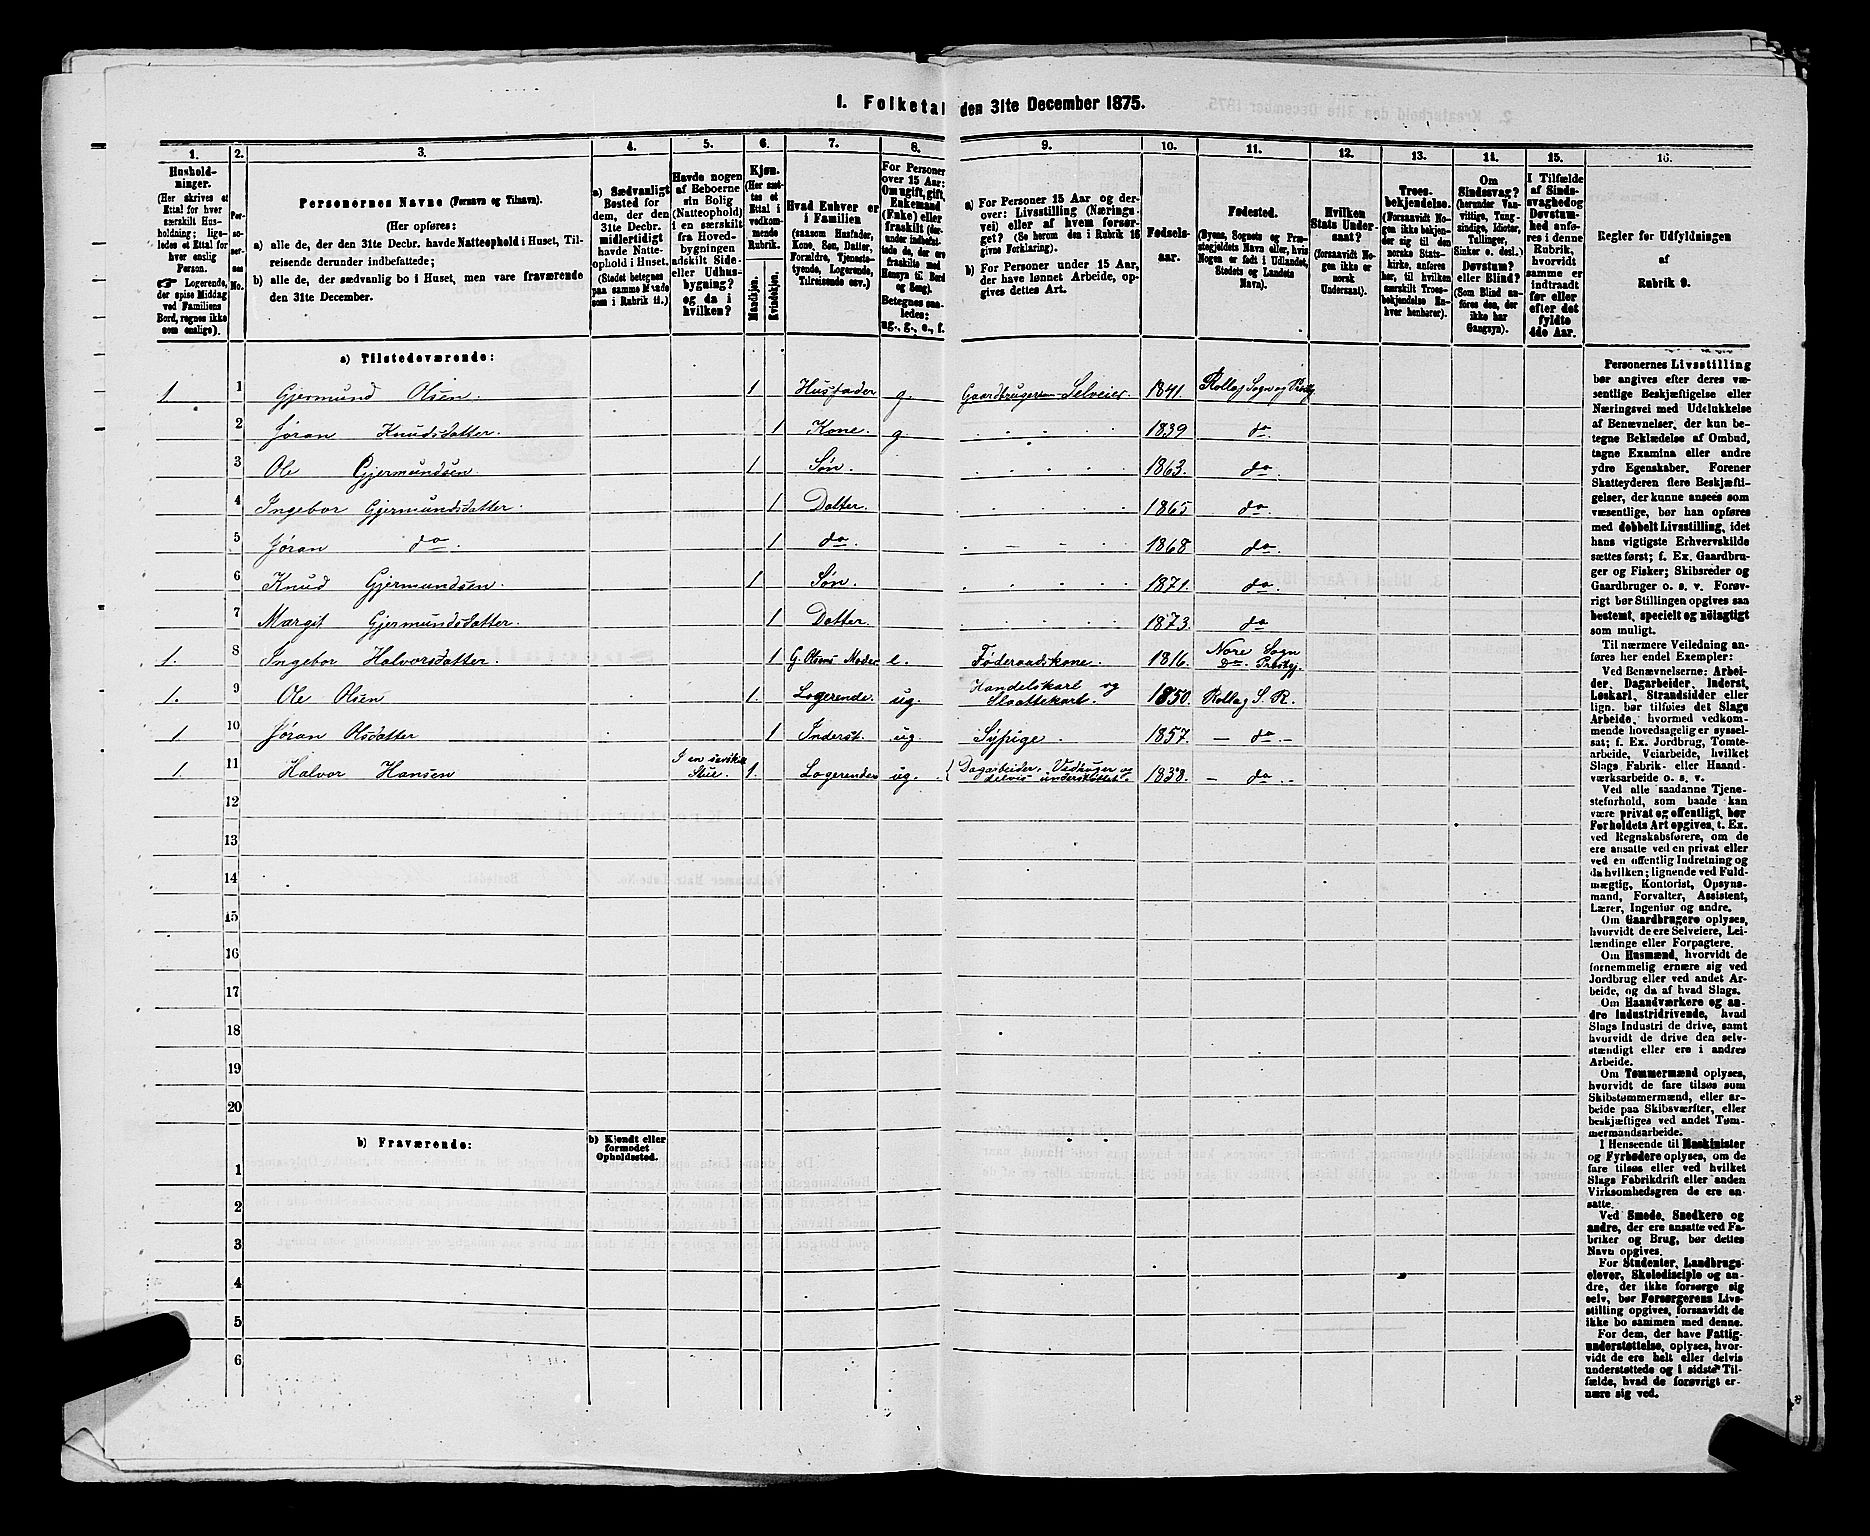 1. Folketal den 31te December 1875.
1.
Hushold-
ninger.
(Her skrives et
Ettal for hver
særskilt Hus-
holdning; lige-
ledes et Ettal for
hver enslig
Person.
☞ Logerende,
der spise Middag
ved Familiens
Bord, regnes ikke
som enslige).
2.
Per-
so-
ner-
nes
No.
3.
Personernes Navne (Fornavn og Tilnavn).
(Her opføres:
a) alle de, der den 31te Decbr. havde Natteophold i Huset, Til-
reisende derunder indbefattede;
b) alle de, der sædvanlig bo i Huset, men vare fraværende
den 31te December.
4.
a) Sædvanligt
Bosted for
dem, der den
31te Decbr.
midlertidigt
havde Natte-
ophold i Huset.
(Stedet betegnes
paa samme Maade
som i Rubrik 11.)
5.
Havde nogen
af Beboerne
sin Bolig
(Natteophold)
i en særskilt
fra Hoved-
bygningen
adskilt Side-
eller Udhus-
bygning?
og da i
hvilken?
6.
Kjøn.
(Her sæt-
tes et
Ettal i
vedkom-
mende
Rubrik.
Mandkjøn.
Kvindekjøn.
7.
Hvad Enhver er
i Familien
(saasom Husfader,
Kone, Søn, Datter,
Forældre, Tjeneste-
tyende, Logerende,
Tilreisende osv.)
8.
For Personer
over 15 Aar:
Om ugift, gift,
Enkemand
(Enke) eller
fraskilt (der-
under indbefat-
tede de, der ere
fraskilte med
Hensyn til Bord
og Seng).
Betegnes saa-
ledes:
ug., g., e., f.
9.
a) For Personer 15 Aar og der-
over: Livsstilling (Nærings-
vei) eller af hvem forsør-
get? (Se herom den i Rubrik 16
givne Forklaring).
b) For Personer under 15 Aar,
der have lønnet Arbeide, op-
gives dettes Art.
10.
Fødsels-
aar.
11.
Fødested.
(Byens, Sognets og Præ-
stegjeldets Navn eller, hvis
Nogen er født i Udlandet,
Stedets og Landets
Navn).
12.
Hvilken
Stats Under-
saat?
(forsaavidt No-
gen ikke er
norsk
Undersaat).
13.
Troes-
bekjendelse.
(Forsaavidt No-
gen ikke bekjen-
der sig til den
norske Stats-
kirke, anføres
her, til hvilken
særskilt Troes-
bekjendelse En-
hver henhører).
14.
Om
Sindssvag?
(herunder Van-
vittige, Tung-
sindige, Idioter,
Tullinger,
Sinker o. desl.)
Døvstum?
eller Blind?
(Som Blind an-
føres den, der
ikke har
Gangsyn).
15.
I Tilfælde
af Sinds-
svaghed og
Døvstum-
hed anfø-
res i denne
Rubrik,
hvorvidt
samme er
indtraadt
før eller
efter det
fyldte
4de Aar.
16.
Regler for Udfyldningen
af
Rubrik 9.
a) Tilstedeværende:
1 1 Gjermund Olsen. 1 Husfader g. Gaardbruger Selveier. 1841. Rollag Sogn og Prstgj.
2 Jøran Knudsdatter. 1 Kone. g. 1839 do
3 Ole Gjermundsen. 1 Søn. 1863. do.
4 Ingebor Gjermundsdatter. 1 Datter. 1865 do.
5 Jøran do. 1 do. 1868 do.
6 Knud Gjermundsen. 1 Søn. 1871. do.
7 Margit Gjermundsdatter. 1 Datter. 1873. do
1. 8 Ingebor Halvorsdatter. 1 G. Olsens Moder e. Føderaadskone. 1816. Nore Sogn
Do. Prstgj.
1. 9 Ole Olsen 1. Logerende. ug. Handelskarl og
Slaattekarl. 1850. Rollag S. R.
1. 10 Jøran Olsdatter 1 Inderst. ug Sypige. 1857. – do. –
1. 11 Halvor Hansen I en særskilt
Stue. 1. Logerende ug. Dagarbeider, Vedhuger og
delvis understøttet. 1838. – do. –
12
13
14
15
16
17
18
19
20
b) Fraværende:
b) Kjendt eller
formodet
Opholdssted.
1
2
3
4
5
6
Personernes Livsstilling
bør angives efter deres væ-
sentlige Beskjæftigelse eller
Næringsvei med Udelukkelse
af Benævnelser, der kun be-
tegne Beklædelse af Ombud,
tagne Examina eller andre
ydre Egenskaber. Forener
Skatteyderen flere Beskjæfti-
gelser, der kunne ansees som
væsentlige, bør han opføres
med dobbelt Livsstilling, idet
hans vigtigste Erhvervskilde
sættes først; f. Ex. Gaardbru-
ger og Fisker; Skibsreder og
Gaardbruger o. s. v. Forøv-
rigt bør Stillingen opgives saa
bestemt, specielt og nøiagtigt
som muligt.
Til nærmere Veiledning an-
føres her endel Exempler:
Ved Benævnelserne: Arbei-
der, Dagarbeider, Inderst,
Løskarl, Strandsidder eller
lign. bør tilføies det Slags
Arbeide, hvormed vedkom-
mende hovedsagelig er syssel-
sat; f. Ex. Jordbrug, Tomte-
arbeide, Veiarbeide, hvilket
Slags Fabrik- eller Haand-
værksarbeide o. s. v.
Ved alle saadanne Tjene-
steforhold, som baade kan
være privat og offentligt, bør
Forholdets Art opgives, t. Ex.
ved Regnskabsførere, om de
ere ansatte ved en privat eller
ved en offentlig Indretning og
da hvilken; lignende ved Fuld-
mægtig, Kontorist, Opsyns-
mand, Forvalter, Assistent,
Lærer, Ingeniør og andre.
Om Gaardbrugere oplyses,
hvorvidt de ere Selveiere, Lei-
lændinge eller Forpagtere.
Om Husmænd, hvorvidt de
fornemmelig ernære sig ved
Jordbrug eller ved andet Ar-
beide, og da af hvad Slags.
Om Haandværkere og an-
dre Industridrivende, hvad
Slags Industri de drive, samt
hvorvidt de drive den selv-
stændigt eller ere i andres
Arbeide.
Om Tømmermænd oplyses,
hvorvidt de fare tilsøs som
Skibstømmermænd, eller ar-
beide paa Skibsværfter, eller
beskjæftiges ved andet Tøm-
mermandsarbeide.
I Henseende til Maskinister
og Fyrbødere oplyses, om de
fare tilsøs eller ved hvilket
Slags Fabrikdrift eller anden
Virksomhedsgren de ere an-
satte.
Ved Smede, Snedkere og
andre, der ere ansatte ved Fa-
briker og Brug, bør dettes
Navn opgives.
For Studenter, Landbrugs-
elever, Skoledisciple og an-
dre, der ikke forsørge sig
selv, bør Forsørgerens Livs-
stilling opgives, forsaavidt de
ikke bo sammen med denne.
For dem, der have Fattig-
understøttelse, oplyses, hvor-
vidt de ere helt eller delvis
understøttede og i sidste Til-
fælde, hvad de forøvrigt er-
nære sig ved.